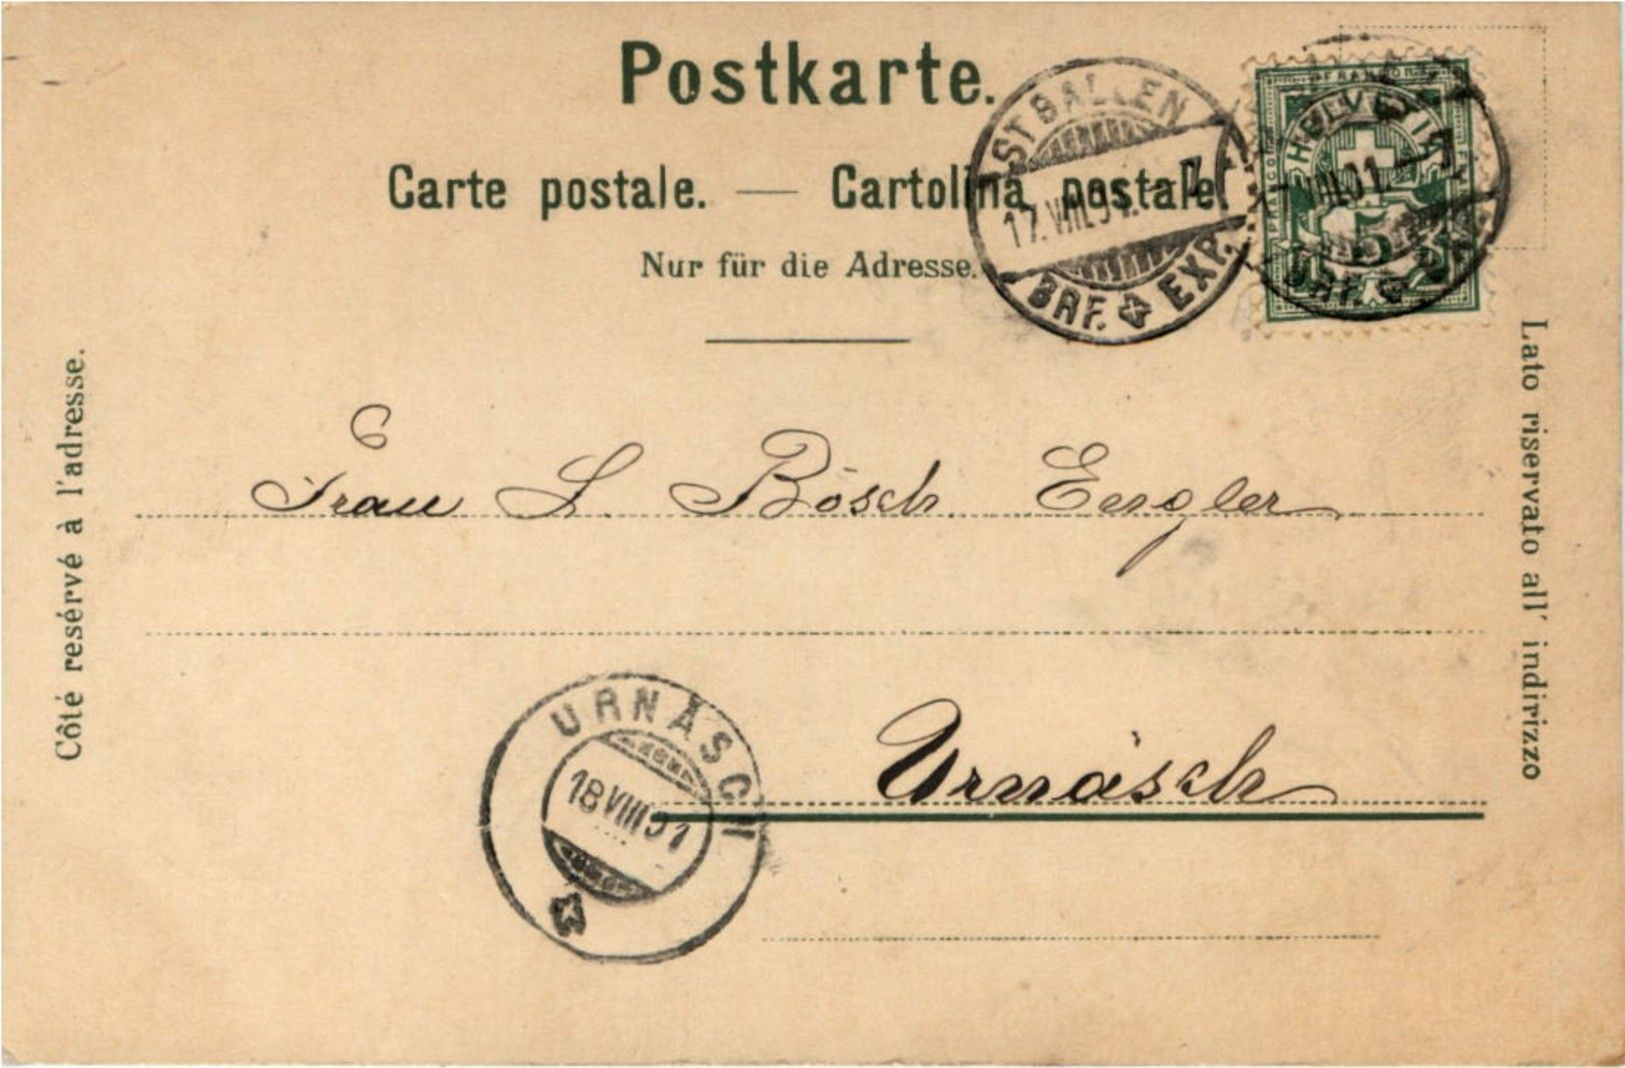 Postkarte.
Carte postale. — Cartolina postale.
Nur für die Adresse.
ST GALLEN
17.VIII.01.-7
BRF. EXP.
FRANCO
HELVETIA
VIII.01.-7
5
BRF.
Côté resérvé à l'adresse.
Lato riservato all' indirizzo
Frau L. Bösch
Urnäsch
URNÄSCH
18 VIII 01